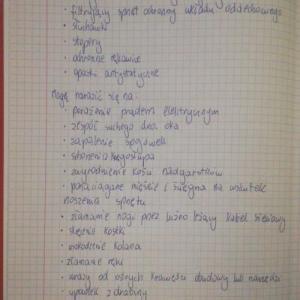 · filtrujący sprzęt ochronny układu oddechowego
· słuchawki
· stopery
· ochronne rękawice
· opaski antystatyczne
Mogę narazić się na:
· porażenie prądem elektrycznym
· zespół suchego dna oka
· zapalenie spojówek
· skrzywienia kręgosłupa
· zwyrodnienie kości nadgarstków
· ponaciągane mięśnie i ścięgna na wskutek
noszenia sprzętu
· złamanie nogi przez luźno leżący kabel sieciowy
· skręcenie kostki
· uszkodzenie kolana
· złamanie ręki
· urazy od ostrych krawędzi obudowy lub narzędzi
· upadek z drabiny